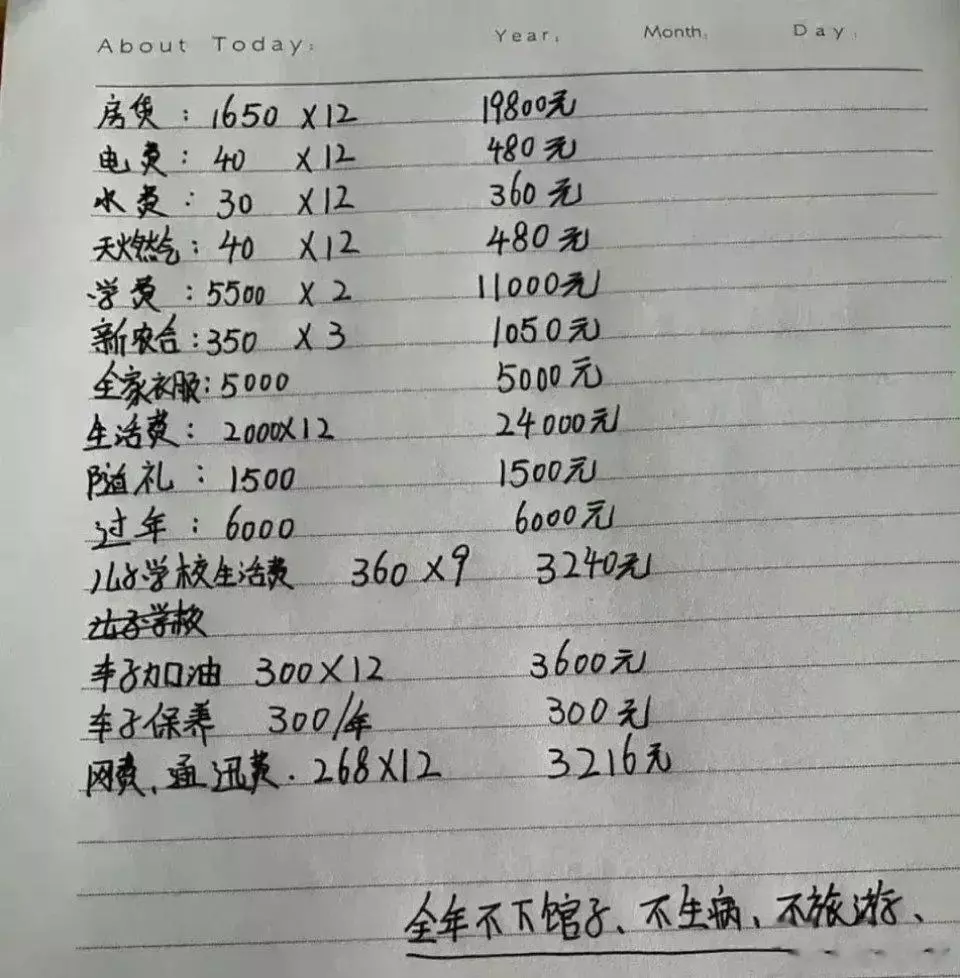 About Today: Year: Month: Day:
房贷：1650 ×12 19800元
电费：40 ×12 480元
水费：30 ×12 360元
天燃气：40 ×12 480元
学费：5500 ×2 11000元
新农合：350 ×3 1050元
全家衣服：5000 5000元
生活费：2000×12 24000元
随礼：1500 1500元
过年：6000 6000元
儿子学校生活费 360×9 3240元
车子加油 300×12 3600元
车子保养 300/年 300元
网费、通迅费.268×12 3216元
全年不下馆子、不生病、不旅游、